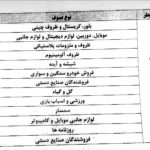 نوع صنوف
بلور، کریستال و ظروف چینی
موبایل، دوربین، لوازم دیجیتال و لوازم جانبی
ظروف و ملزومات پلاستیکی
ظروف آلومینیوم
شیشه و آینه
فروش خودرو سنگین و سواری
فروشندگان صنایع دستی
گل و گیاه
ورزشی و اسباب بازی
سمسار
لوازم جانبی موبایل و کامپیوتر
روزنامه ها
فروشندگان صنایع دستی